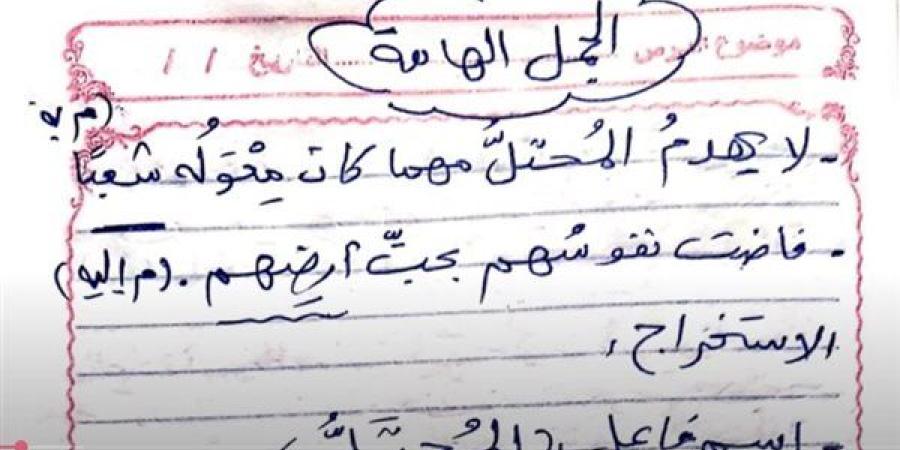 الجمل الهامة
موضوع الدرس ........ التاريخ / /
- لا يهدمُ المُحتلُّ مهما كان مِعْوَلُه شعبًا (م به
- فاضت نفوسُهم بحبِّ أرضِهم. (م إليه)
الاستخراج :
- اسم فاعل : (المُحتَلُّ)